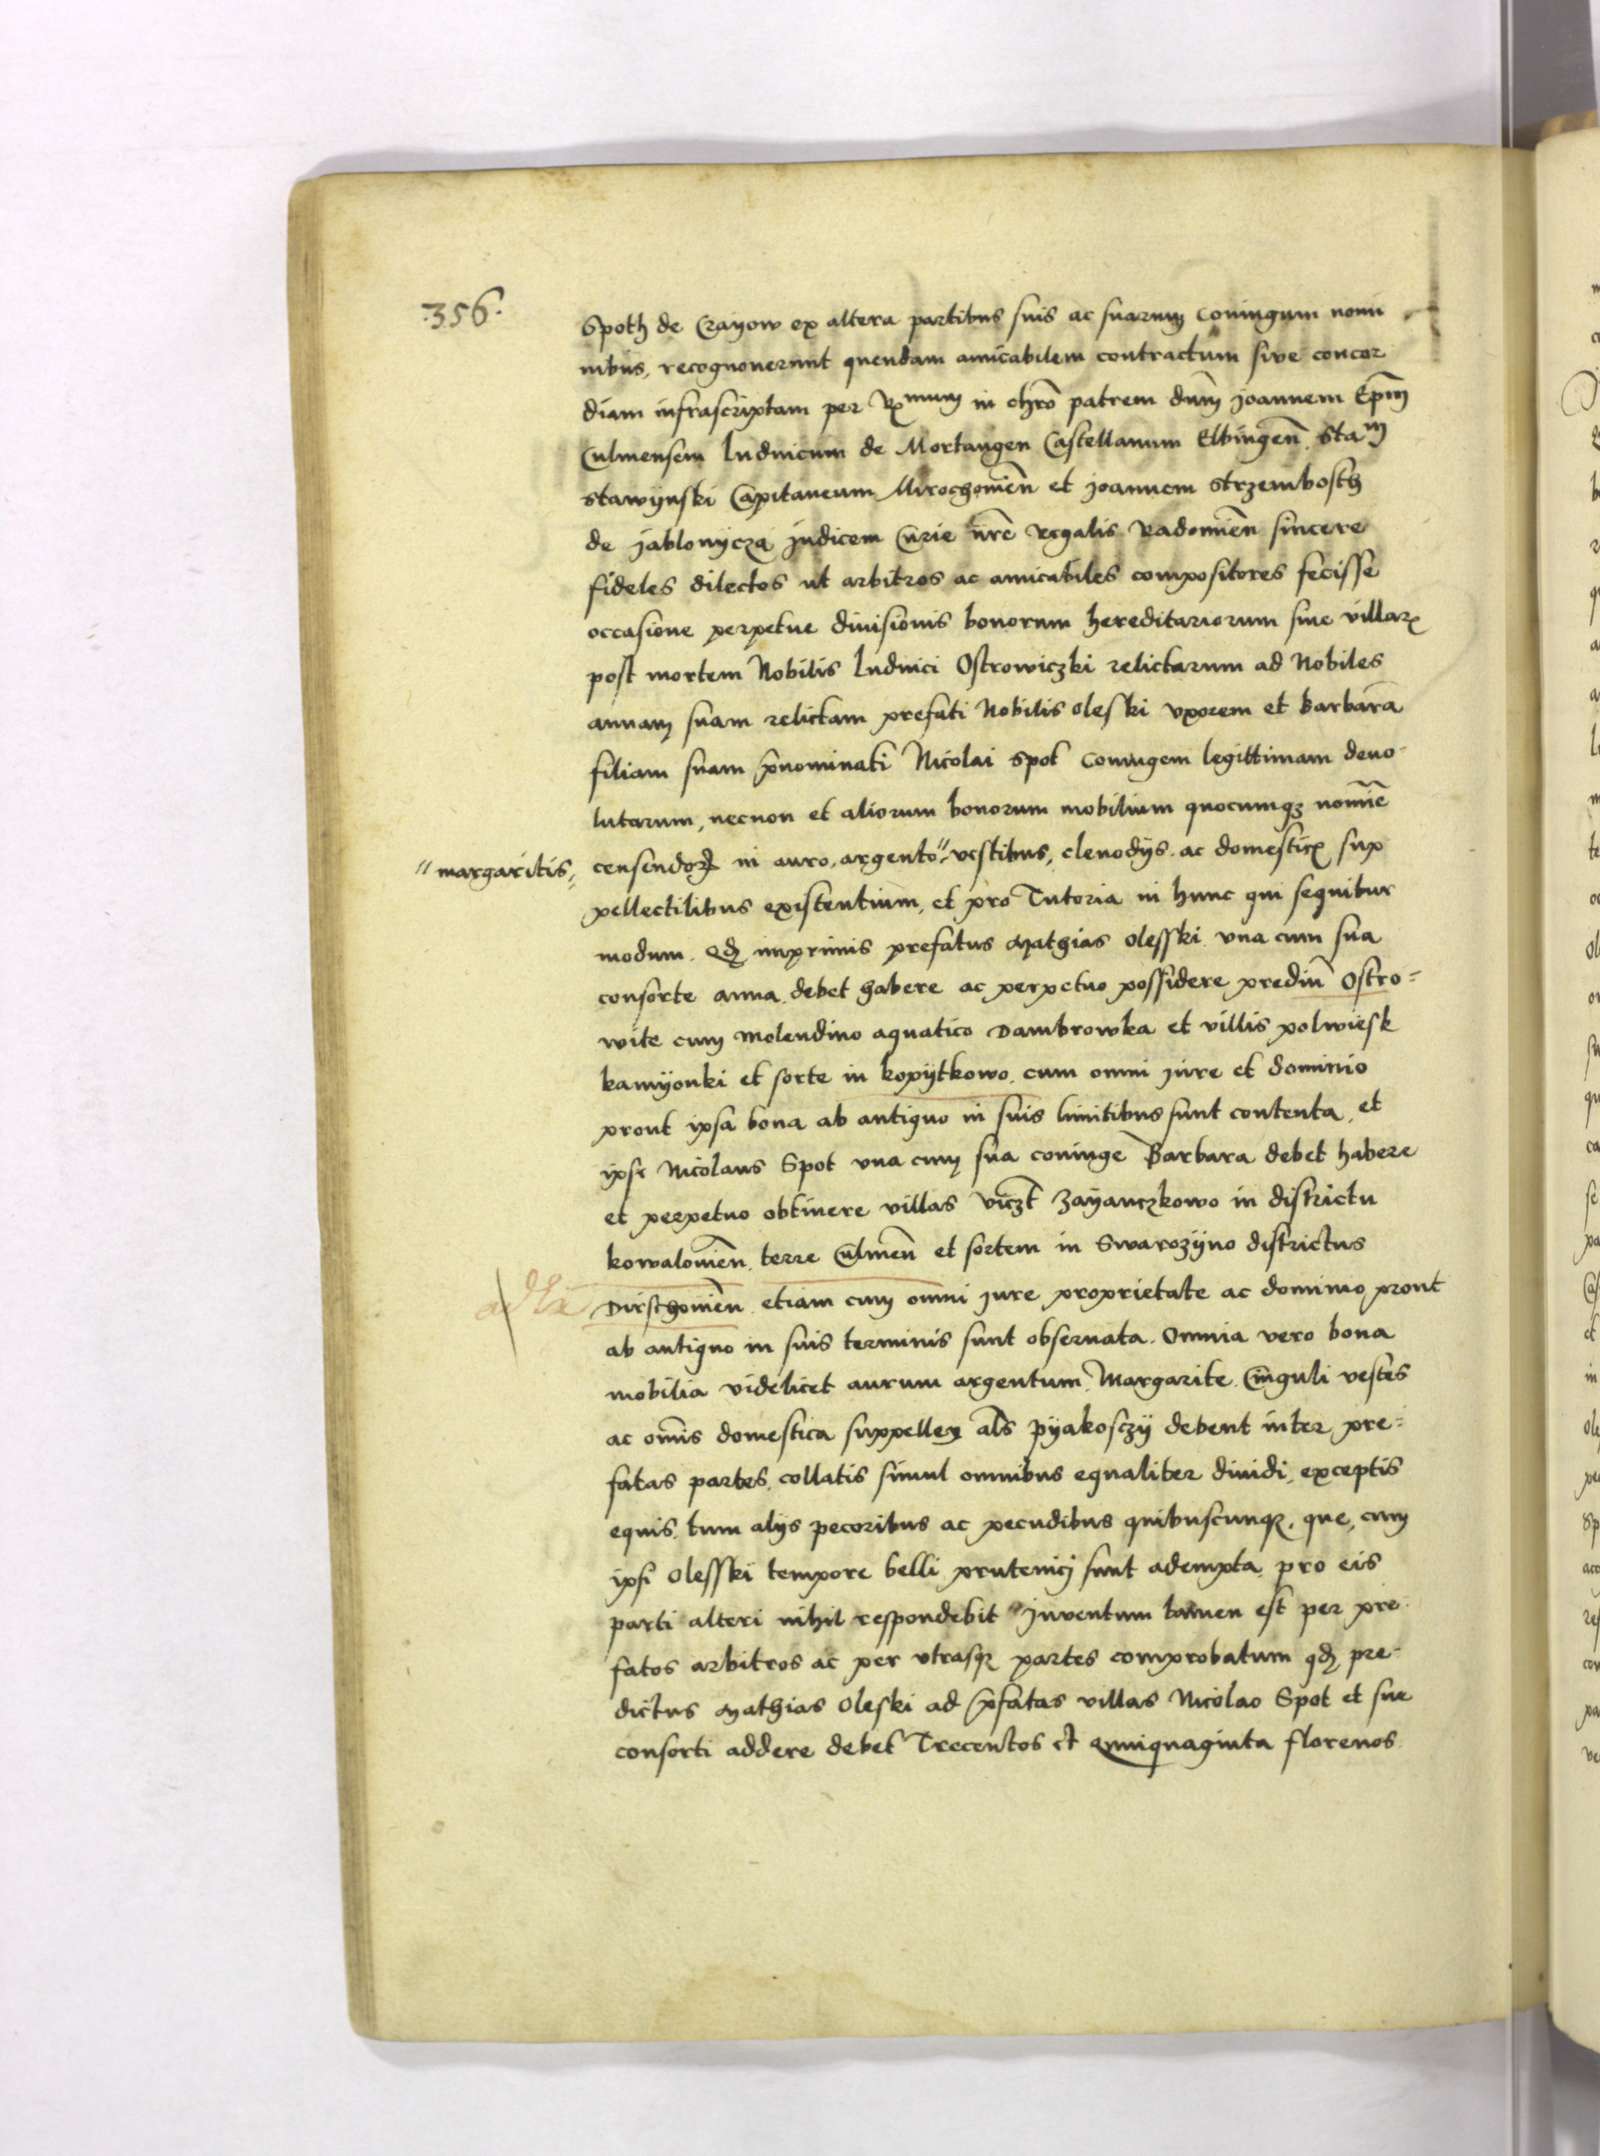 .356.
Spoth de Crayow ex altera partibus suis ac suarum coniugum nomi
nibus, recognouerunt quendam amicabilem contractum sive concor
diam infrascriptam per R mum in chrō patrem dnm̄ Joannem Epm̄
Culmensem Ludouicum de Mortangen Castellanum Elbingen̄. Sta m
stawÿnski Capitaneum Mirochouien̄ et Joannem Strzembosch
de Jablonycza Judicem Curie nr̄e Regalis Radomien̄ sincere
fideles dilectos ut arbitros ac amicabiles compositores fecisse
occasione perpetue diuisionis bonorum hereditariorum siue villarꝫ
post mortem Nobilis Ludouici Ostrowiczki relictarum ad Nobiles
annam suam relictam prefati Nobilis oleski vxorem et barbarā
filiam suam pr̄nominati Nicolai Spot Coniugem legittimam deuo-
lutarum, necnon et aliorum bonorum mobilium quocumqꝫ nomīe
"margaritis,,
censendorꝫ in auro, argento" vestibus, clenodijs. ac domesticꝫ sup
pellectilibus existentium, et pro Tutoria in hunc qui sequitur
modum. Qđ imprimis prefatus Mathias olesski vna cum sua
consorte anna debet habere ac perpetuo possidere prediū Ostro=
wite cum molendino aquatico Dambrowka et villis polwiesk
kamÿonki et sorte in kopÿtkowo. cum omni iure et dominio
prout ipsa bona ab antiquo in suis limitibus sunt contenta, et
ipse Nicolaus Spot vna cum sua coniuge Barbara debet habere
et perpetuo obtinere villas vicꝫt Zayanczkowo in districtu
kowalouien̄. terre Culmen̄ et sortem in Swarozÿno districtus
Dirschouien̄ etiam cum omni iure proprietate ac dominio prout
ab antiquo in suis terminis sunt obseruata. Omnia vero bona
mobilia videlicet aurum argentum. Margarite. Cinguli vestes
ac om̄is domestica suppellex al̄s pÿakosczÿ debent inter pre=
fatas partes. collatis simul omnibus equaliter diuidi, exceptis
equis. tum alijs pecoribus ac pecudibus quibuscunqꝫ. que, cum
ipsi olesski tempore belli prutenicj sunt adempta, pro eis
parti alteri nihil respondebit Inventum tamen est per pre
fatos arbitros ac per vtrasqꝫ partes comprobatum qđ pre-
dictus Mathias oleski ad pr̄fatas villas Nicolao Spot et sue
consorti addere debet Trecentos et Quinquaginta florenos.